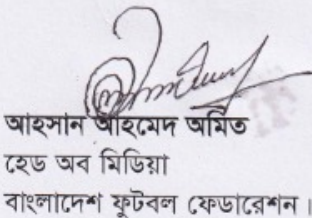 আহসান আহমেদ অমিত
হেড অব মিডিয়া
বাংলাদেশ ফুটবল ফেডারেশন।